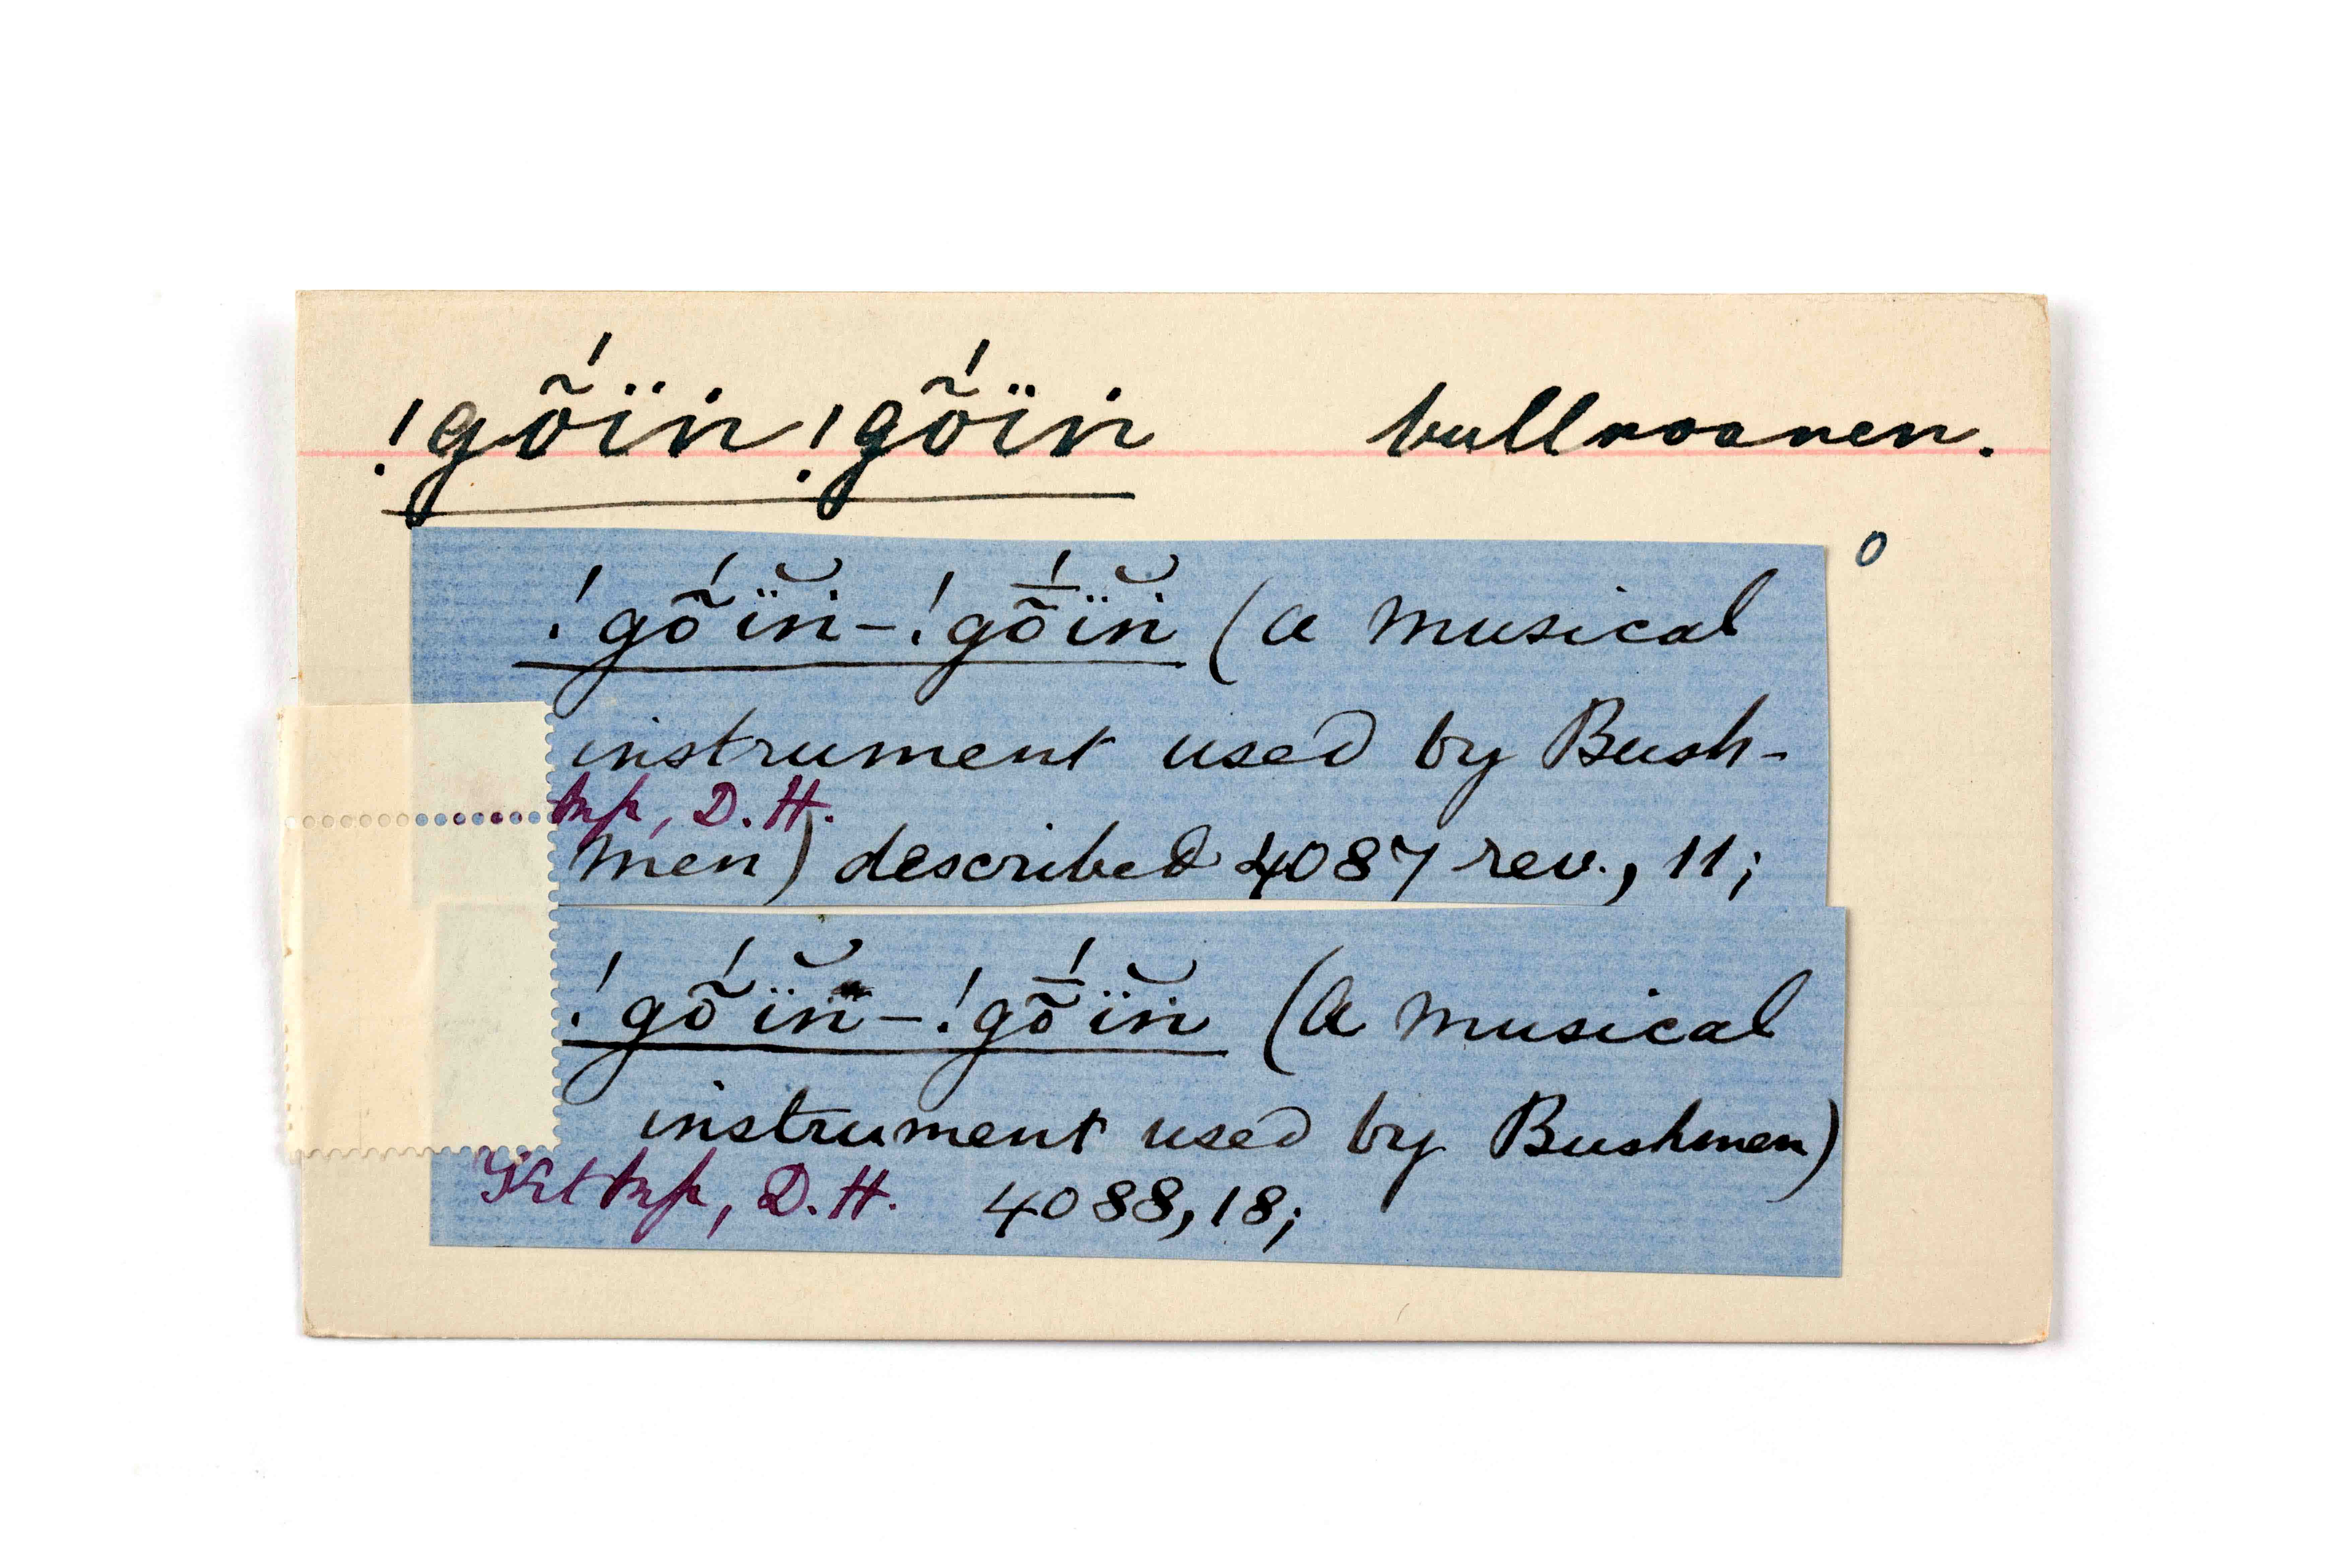 !gṍïn!gṍïn bullroarer.
0
!gṍïn̆-!gṍïn̆ (a musical
instrument used by Bush-
D.H.
men) described 4087 rev., 11;
!gṍïn̆-!gṍïn̆ (a musical
instrument used by Bushmen)
D.H. 4088,18;